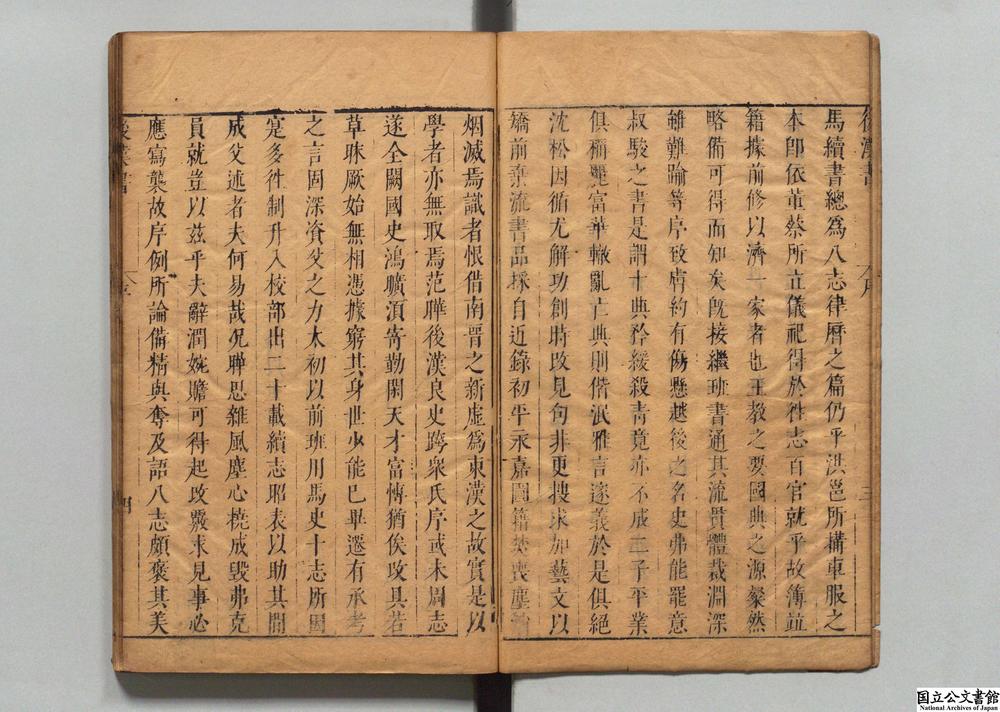 馬續書總爲八志律曆之篇仍乎洪邕所構車服之
本卽依董蔡所立儀祀得於往志百官就乎故簿並
籍據前修以濟一家者也王教之要國典之源粲然
略備可得而知矣旣接繼班書通其流貫體裁淵深
雖難踰等序致膚約有傷懸越後之名史弗能罷意
叔駿之書是謂十典矜緩殺靑竟亦不成二子平業
俱稱麗富華轍亂亡典則偕泯雅言邃義於是俱絕
沈松因循尤解功創時改見句非更搜求加藝文以
矯前棄流書品採自近錄初平永嘉圖籍焚喪塵
烟滅焉識者恨借南晉之新虛爲東漢之故實是以
學者亦無取焉范曄後漢良史跨衆氏序或未周志
遂全闕國史鴻曠須寄勤閑天才富博猶俟改具若
草昧厥始無相憑據窮其身世少能已畢遷有承考
之言固深資父之力太初以前班用馬史十志所因
寔多往制升入校部出二十載續志昭表以助其間
成父述者夫何易哉況曄思雜風塵心橈成毀弗克
員就豈以茲乎夫辭潤婉贍可得起改覈求見事必
應寫襲故序例所論備精與奪及語八志頗褒其美
後漢書
序
三
後漢書
四
国立公文書館
National Archives of Japan